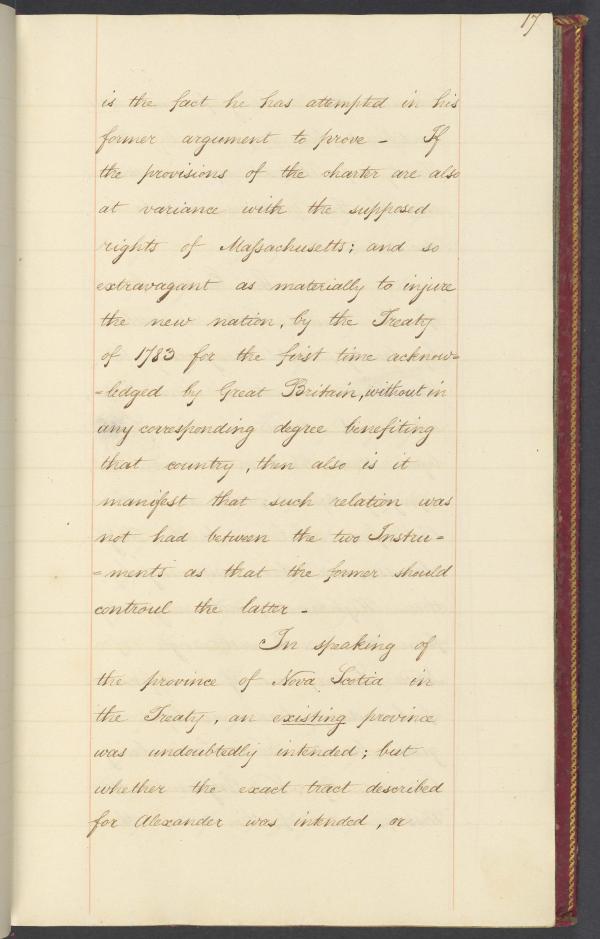 17
is the fact he has attempted in his
former argument to prove - If
the provisions of the charter are also
at variance with the supposed
rights of Massachusetts; and so
extravagant as materially to injure
the new nation, by the Treaty
of 1783 for the first time acknow=
=ledged by Great Britain, without in
any corresponding degree benefiting
that country, then also is it
manifest that such relation was
not had between the two Instru=
=ments as that the former should
controul the latter -
In speaking of
the province of Nova Scotia in
the Treaty, an existing province
was undoubtedly intended; but
whether the exact tract described
for Alexander was intended, or